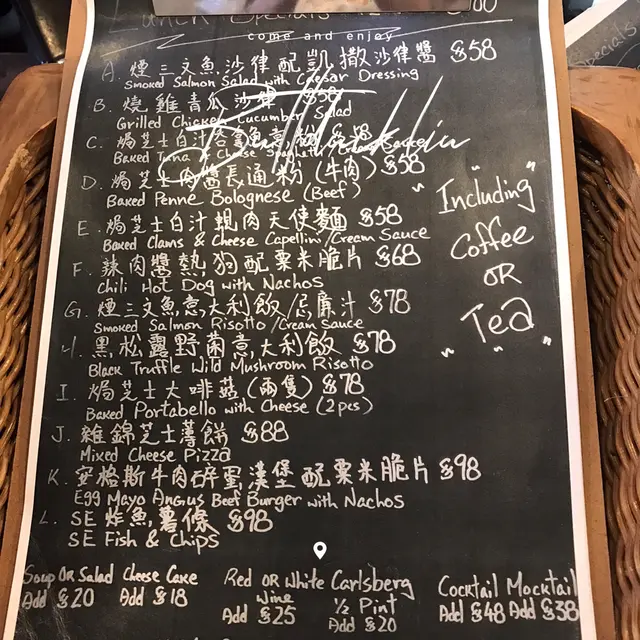 Lunch Specials
come and enjoy
A. 煙三文魚沙律配凱撒沙律醬 $58
Smoked Salmon Salad with Caesar Dressing
B. 燒雞青瓜沙律 $58
Grilled Chicken Cucumber Salad
C. 焗芝士白汁吞拿魚意粉 $58
Baked Tuna & Cheese Spaghetti / Cream Sauce
D. 焗芝士肉醬長通粉 (牛肉) $58
Baked Penne Bolognese (Beef)
E. 焗芝士白汁蜆肉天使麵 $58
Baked Clams & Cheese Capellini /Cream Sauce
F. 辣肉醬熱狗配粟米脆片 $68
Chili Hot Dog with Nachos
G. 煙三文魚意大利飯/忌廉汁 $78
Smoked Salmon Risotto /Cream Sauce
H. 黑松露野菌意大利飯 $78
Black Truffle Wild Mushroom Risotto
I. 焗芝士大啡菇 (兩隻) $78
Baked Portabello with Cheese (2pcs)
J. 雜錦芝士薄餅 $88
Mixed Cheese Pizza
K. 安格斯牛肉碎蛋漢堡配粟米脆片 $98
Egg Mayo Angus Beef Burger with Nachos
L. SE 炸魚薯條 $98
SE Fish & Chips
"Including"
Coffee
OR
"Tea"
Soup OR Salad
Add $20
Cheese Cake
Add $18
Red OR White
Wine
Add $25
Carlsberg
1/2 Pint
Add $20
Cocktail
Add $48
Mocktail
Add $38
Specials